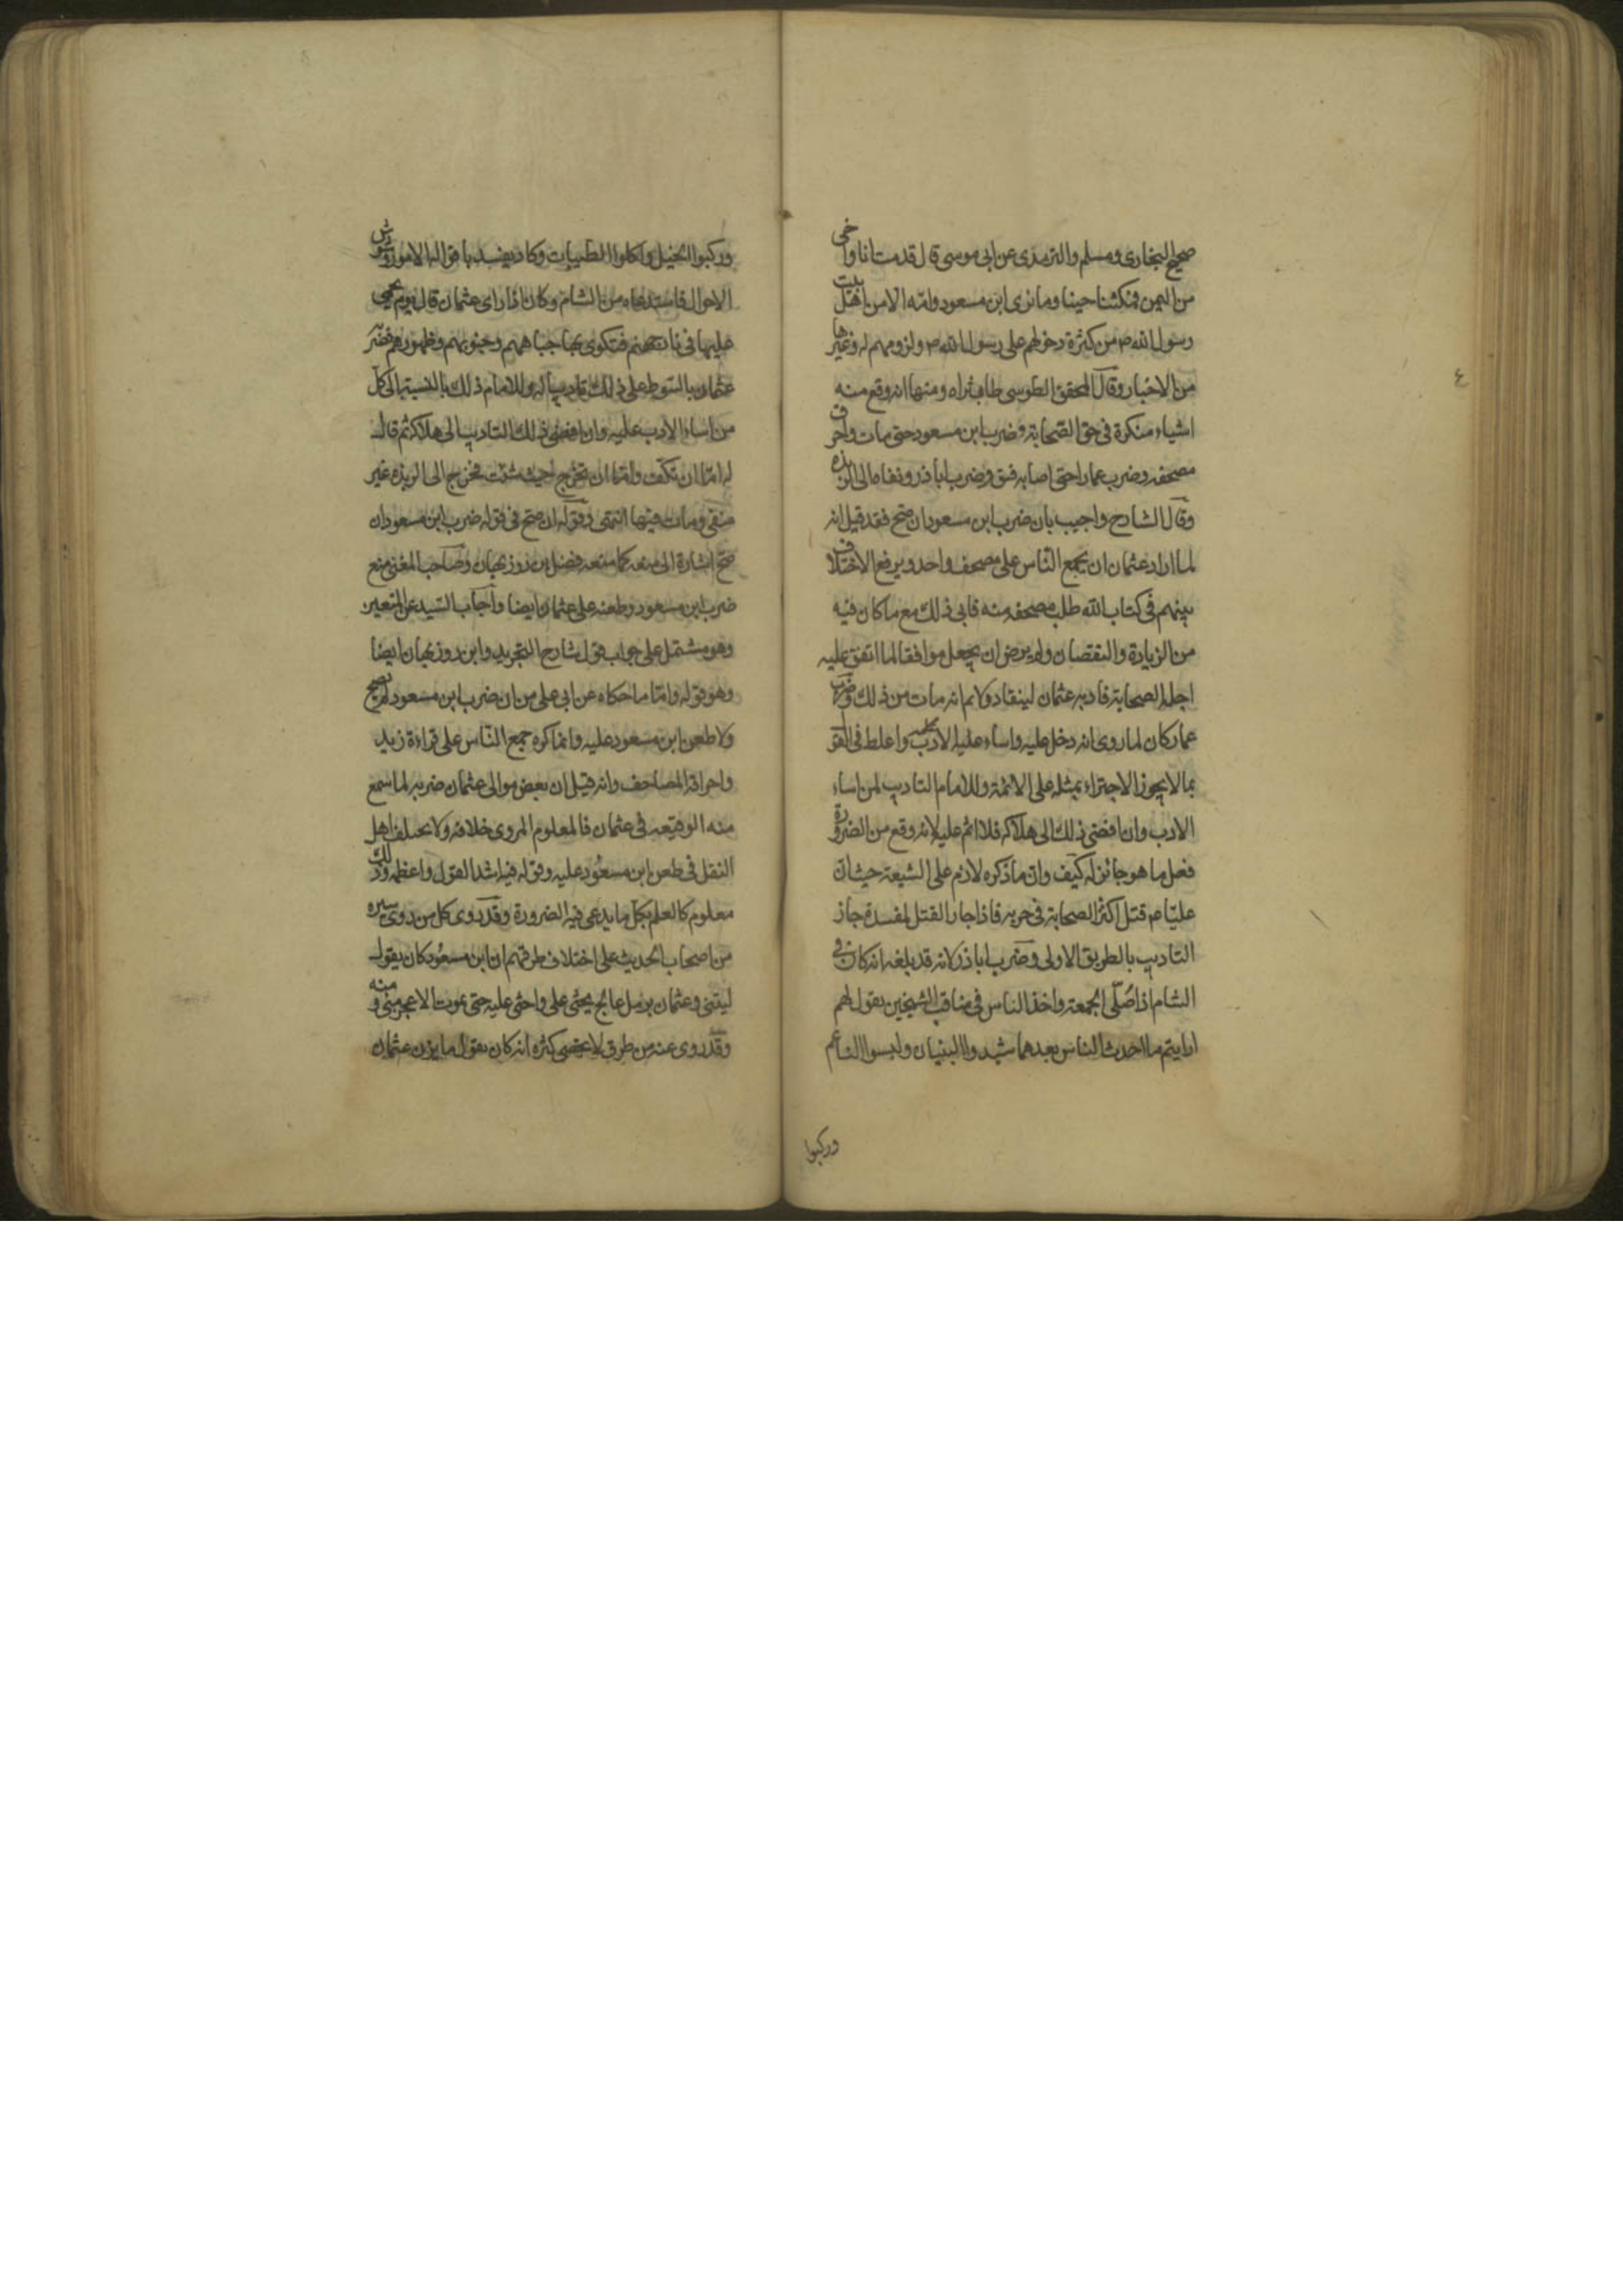 صحيح البخارى ومسلم والترمدى عن ابى موسى قال قدمت انا واخى
من اليمن فمكثنا حينا وما نرى ابن مسعود وامه الا من اهل بيت
رسول الله ص من كثرة دخولهم على رسول الله ص ولزومهم له وغيرها
من الاخبار وقال المحقق الطوسى طاب ثراه ومنها انه وقع منه
اشياء منكرة فى حق الصحابة وضرب ابن مسعود حتى مات واحرق
مصحفه وضرب عمارا حتى اصابه فتق وضرب اباذر ونفاه الى الربذه
وقال الشارح واجيب بان ضرب ابن مسعود ان صح فقد قيل انه
لما اراد عثمان ان يجمع الناس على مصحف واحد ويرفع الاختلاف
بينهم فى كتاب الله طلب مصحفه منه فابى ذلك مع ما كان فيه
من الزيادة والنقصان ولم يرض ان يجعل موافقا لما اتفق عليه
اجلة الصحابة فادبه عثمان لينقاد ولانم انه مات من ذلك وضرب
عمار كان لما روى انه دخل عليه واساء عليه الادب واغلظ فى القول
بما لا يجوز الاجتراء بمثله على الائمة وللامام التاديب لمن اساء
الادب وان افضى ذلك الى هلاكه فلا اثم عليه لانه وقع من الضرورة
فعل ما هو جائز له كيف وان ما ذكره لازم على الشيعة حيث ان
عليا ع قتل اكثر الصحابة فى حربه فاذا جاز القتل لمفسدة جاز
التاديب بالطريق الاولى وضرب اباذر لانه قد بلغه انه كان فى
الشام اذا صلى الجمعة واخذ الناس فى مناقب الشيخين يقول لهم
ارايتم ما احدث الناس بعدهما شيدوا البنيان ولبسوا الناعم
وركبوا
٤
وركبوا الخيل واكلوا الطيبات وكاد يفسد باقواله الامور ويشوش
الاحوال فاستدعاه من الشام وكان اذا راى عثمان قال يوم يحمى
عليها فى نار جهنم فتكوى بها جباههم وجنوبهم وظهورهم فضربه
عثمان بالسوط على ذلك تاديبا له وللامام ذلك بالنسبة الى كل
من اساء الادب عليه وان افضى ذلك التاديب الى هلاكه ثم قال
له اما ان تكف واما ان تخرج حيث شئت فخرج الى الربذه غير
منفى ومات فيها انتهى وقوله ان صح فى قوله ضرب ابن مسعود ان
صح اشارة الى منعه كما منعه فضل بن روزبهان وصاحب المغنى منع
ضرب ابن مسعود وطعنه على عثمان ايضا واجاب السيد عن المنعين
وهو مشتمل على جواب قول شارح التجريد وابن روزبهان ايضا
وهو قوله واما ما حكاه عن ابى على من ان ضرب ابن مسعود لم يصح
ولا طعن ابن مسعود عليه وانما كره جمع الناس على قراءة زيد
واحراقه المصاحف وانه قيل ان بعض موالى عثمان ضربه لما سمع
منه الوقيعه فى عثمان فالمعلوم المروى خلافه ولا يختلف اهل
النقل فى طعن ابن مسعود عليه وقوله فيه اشد القول واعظمه وذلك
معلوم كالعلم بكل ما يدعى فيه الضرورة وقد روى كل من روى سيره
من اصحاب الحديث على اختلاف طرقهم ان ابن مسعود كان يقول
ليتنى وعثمان برمل عالج يحثى على واحثى عليه حتى يموت الاعجز منى ومنه
وقد روى عنه من طرق لا تحصى كثره انه كان يقول ما يزن عثمان